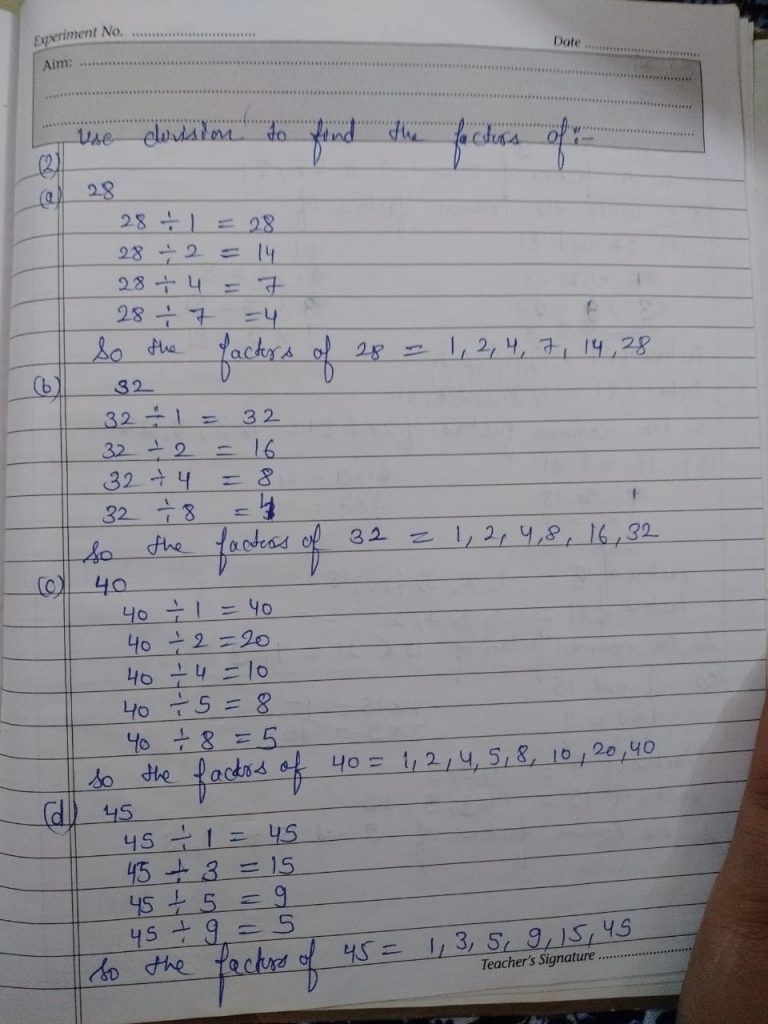 Experiment No. ........................
Date ........................
Aim: ........................
Use division to find the factors of :-
(2)
(a) 28
28 ÷ 1 = 28
28 ÷ 2 = 14
28 ÷ 4 = 7
28 ÷ 7 = 4
So the factors of 28 = 1, 2, 4, 7, 14, 28
(b) 32
32 ÷ 1 = 32
32 ÷ 2 = 16
32 ÷ 4 = 8
32 ÷ 8 = 4
So the factors of 32 = 1, 2, 4, 8, 16, 32
(c) 40
40 ÷ 1 = 40
40 ÷ 2 = 20
40 ÷ 4 = 10
40 ÷ 5 = 8
40 ÷ 8 = 5
So the factors of 40 = 1, 2, 4, 5, 8, 10, 20, 40
(d) 45
45 ÷ 1 = 45
45 ÷ 3 = 15
45 ÷ 5 = 9
45 ÷ 9 = 5
So the factors of 45 = 1, 3, 5, 9, 15, 45
Teacher's Signature ........................